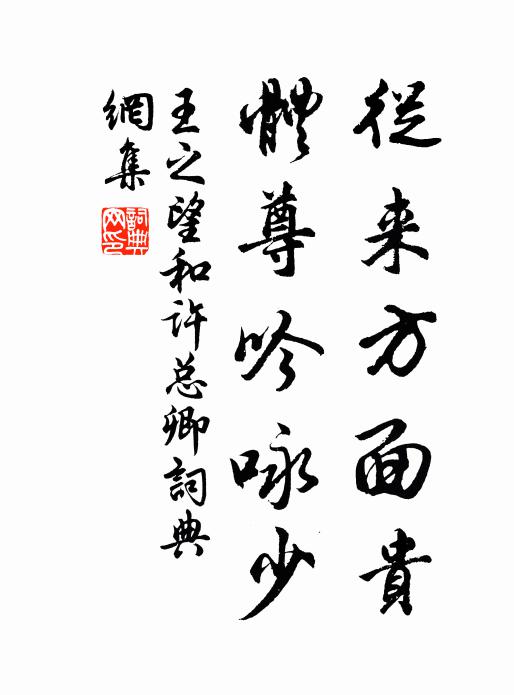 從来方面貴
體尊吟咏少
王之望和許总卿詞典
網集
詞典网印